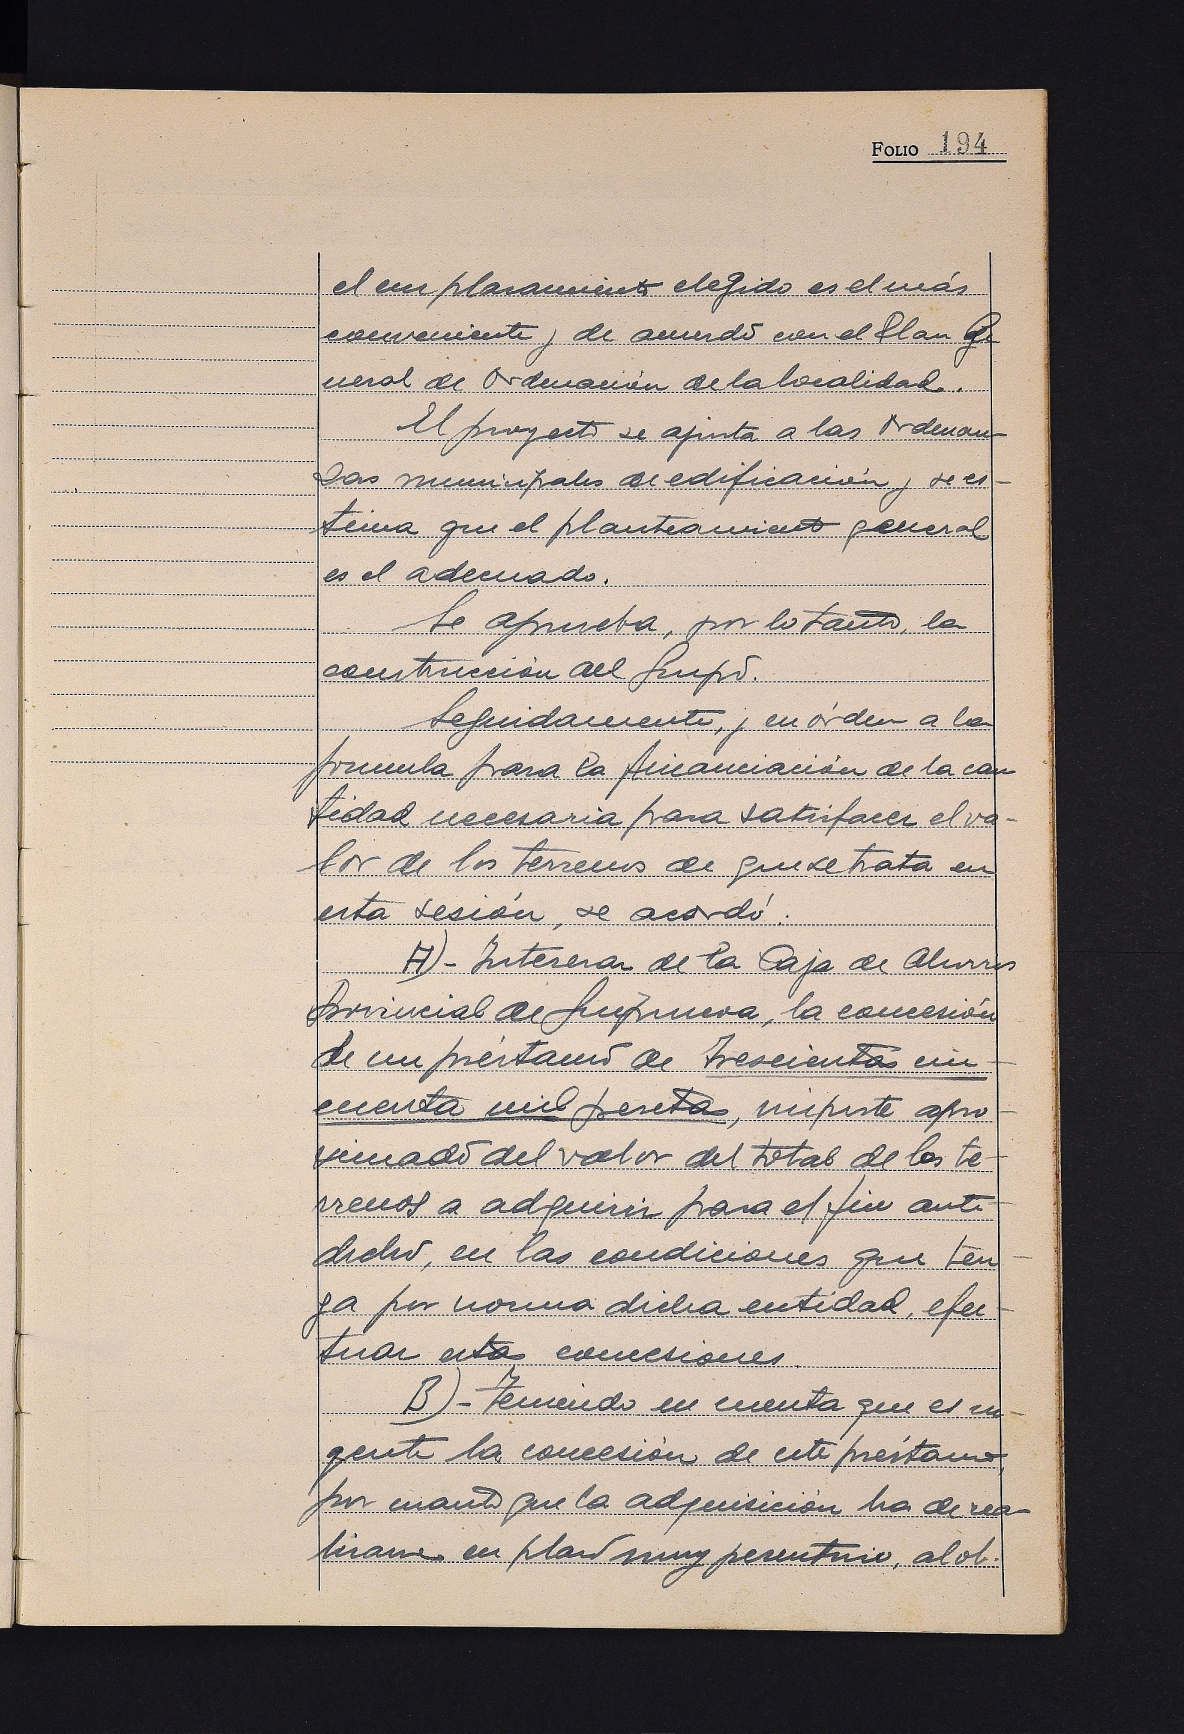 FOLIO 194
el emplazamiento elegido es el más
conveniente y de acuerdo con el Plan Ge
neral de Ordenación de la localidad.
El proyecto se ajusta a las Ordenan
zas municipales de edificación y se es-
tima que el planteamiento general
es el adecuado.
Se aprueba, por lo tanto, la
construcción del Grupo.
Seguidamente, y en órden a la
formula para la financiación de la can
tidad necesaria para satisfacer el va-
lor de los terrenos de que se trata en
esta sesión, se acordó:
A)- Interesar de la Caja de Ahorros
Provincial de Guipuzcoa, la concesión
de un préstamo de trescientas cin-
cuenta mil pesetas, importe apro-
ximado del valor del total de los te-
rrenos a adquirir para el fin ante-
dicho, en las condiciones que ten-
ga por norma dicha entidad, efec-
tuar estas concesiones.
B)- Teniendo en cuenta que es ur-
gente la concesión de este préstamo,
por cuanto que la adquisición ha de rea-
lizarse en plazo muy perentorio, al ob-